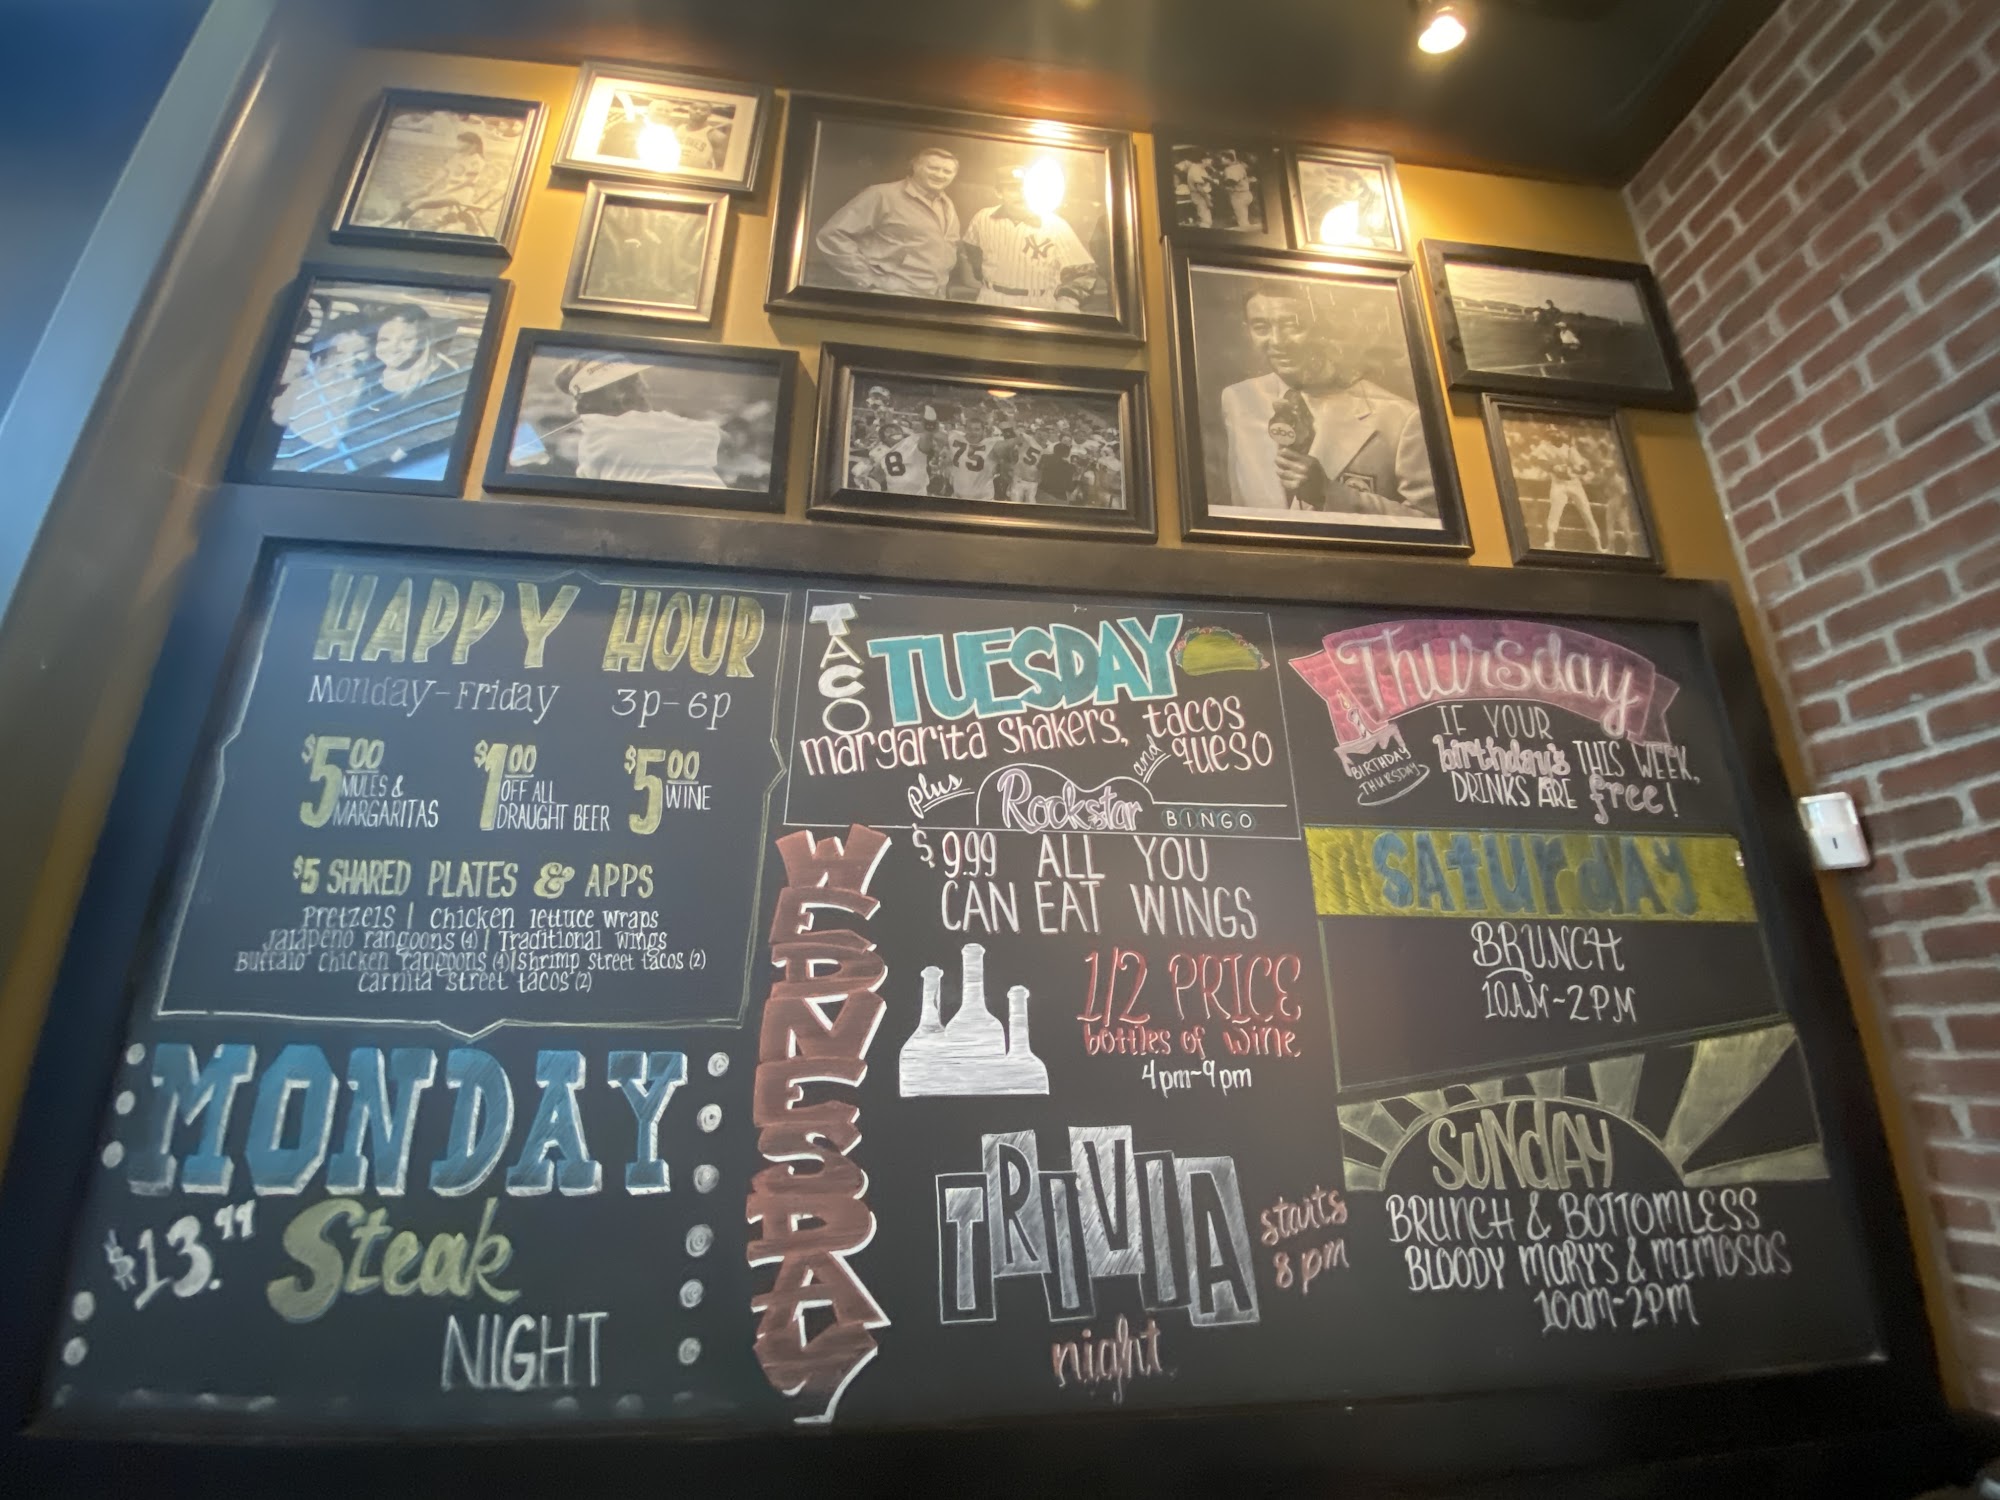 HAPPY HOUR
Monday-Friday 3p-6p
$5.00 MULES & MARGARITAS
$1.00 OFF ALL DRAUGHT BEER
$5.00 WINE
$5 SHARED PLATES & APPS
Pretzels | Chicken lettuce wraps
Jalapeno rangoons (4) | Traditional wings
Buffalo chicken rangoons (4) | Shrimp street tacos (2)
Carnita street tacos (2)
MONDAY
$13.99 Steak
NIGHT
TACO TUESDAY
margarita shakers, tacos
and queso
plus Rockstar BINGO
WEDNESDAY
$9.99 ALL YOU
CAN EAT WINGS
1/2 PRICE
bottles of wine
4pm-9pm
TRIVIA
night
starts
8pm
Thursday
BIRTHDAY
THURSDAY
IF YOUR
birthday's THIS WEEK,
DRINKS ARE free!
SATURDAY
BRUNCH
10AM-2PM
SUNDAY
BRUNCH & BOTTOMLESS
BLOODY MARY'S & MIMOSAS
10am-2PM
NY
abc
8
75
5